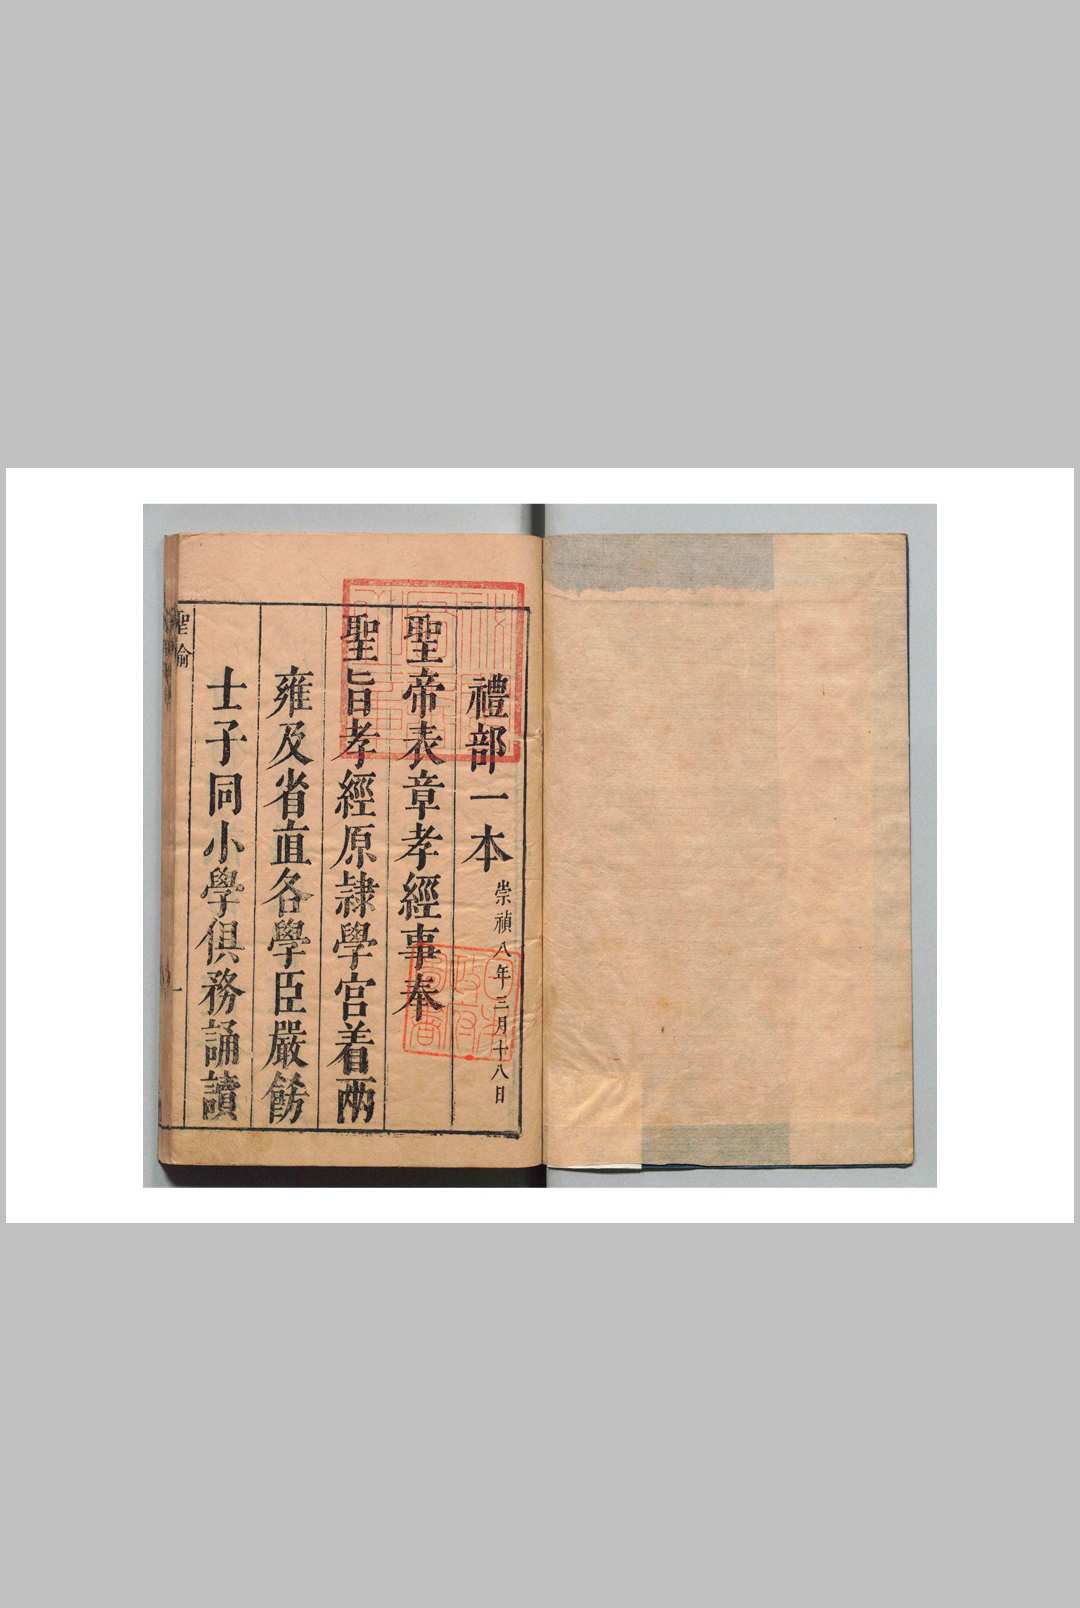 禮部一本崇禎八年三月十八日
聖帝表章孝經事奉
聖旨孝經原隷學官着兩
雍及省直各學臣嚴飭
士子同小學俱務誦讀
聖諭
一